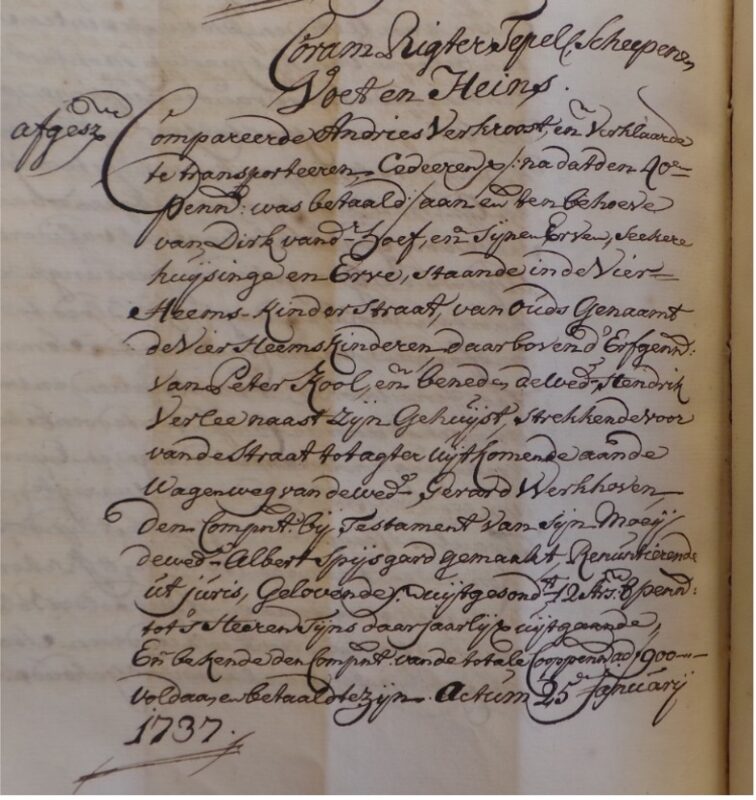 Coram Rigter Tepel, Scheepenen
Voet en Heins.
afgesz
Compareerde Andries Verkroost, en Verklaarde
te transporteeren Cedeeren &c /: na dat den 40e
penn: was betaald / aan en ten behoeve
van Dirk vand'r Hoef, en Sijne Erven, Seekere
huijsinge en Erve, staande in de Vier
Heems-kinder straat, van ouds Genaamt
de Vier Heemskinderen daar boven d'Erfgen:
van Peter Kool, en beneden de wed. Hendrik
Verlee naast zijn Gehuijst, strekkende voor
van de straat tot agter uijtkomende aan de
Wagenweg van de wed. Gerard Werkhoven,
den Compnt. bij Testament van Sijn Moeij
de wed. Albert Spijsgard gemaakt, Renuntieerende
ut juris, Gelovende &c uijtgesond't 12 strs. 8 penn:
tot 's Heeren Tijns daar jaarlijx uijtgaande,
En bekende den Compnt. van de totale Cooppenn: ad ƒ 900-"-"-
voldaan en betaald te zijn. Actum 25e Januarij
1737.